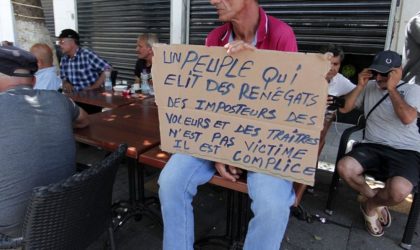 UN PEUPLE QUI
ELIT DES RENEGATS
DES IMPOSTEURS DES
VOLEURS ET DES TRAÎTRES
N'EST PAS VICTIME
IL EST COMPLICE